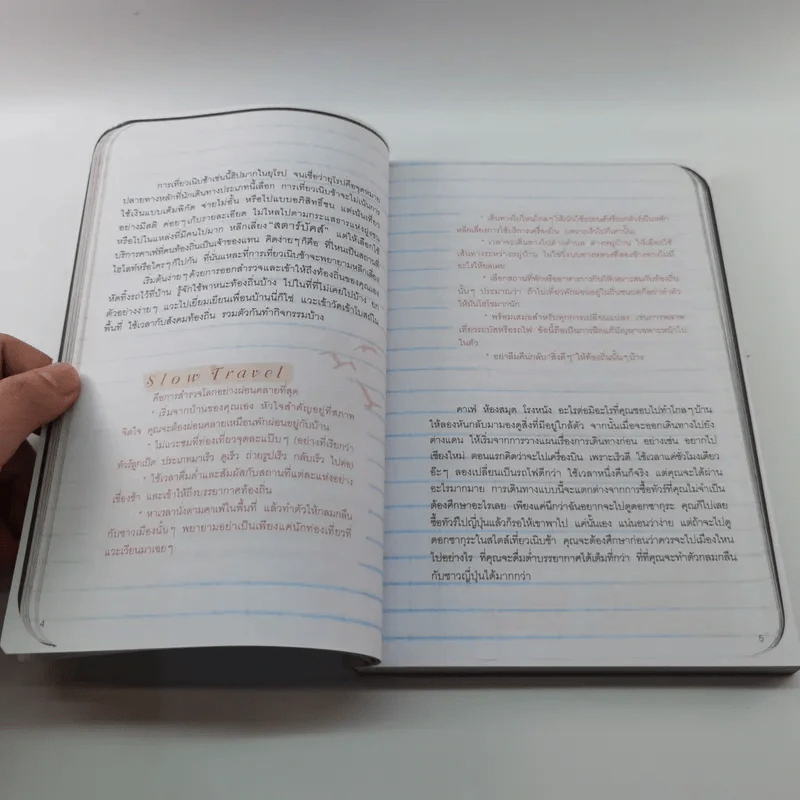 การเที่ยวเนิบช้าเช่นนี้ฮิปมากในยุโรป จนเชื่อว่ายุโรปคือจุดหมาย
ปลายทางหลักที่นักเดินทางประเภทนี้เลือก การเที่ยวเนิบช้าจะไม่เน้นการ
ใช้เงินแบบเต็มพิกัด จ่ายไม่อั้น หรือไปแบบอภิสิทธิ์ชน แต่เน้นเที่ยว
อย่างมีสติ ค่อยๆ เก็บรายละเอียด ไม่ไหลไปตามกระแสอารมณ์
หรือไปในแหล่งที่มีคนไปมาก หลีกเลี่ยง "สตาร์บัคส์" แต่ให้เลือกใช้
บริการคาเฟ่ที่คนท้องถิ่นเป็นเจ้าของแทน คิดง่ายๆ ก็คือ ที่ไหนเป็นสถานที่
ไฮไลท์หรือใครๆ ก็ไปกัน ที่นั่นแหละที่การเที่ยวเนิบช้าจะพยายามหลีกเลี่ยง
เริ่มต้นง่ายๆ ด้วยการออกสำรวจและเข้าให้ถึงท้องถิ่นของคุณเอง
หัดทิ้งรถไว้ที่บ้าน รู้จักใช้พาหนะท้องถิ่นบ้าง ไปในที่ที่ไม่เคยไปบ้าง ยก
ตัวอย่างง่ายๆ แวะไปเยี่ยมเยียนเพื่อนบ้านนี่ก็ใช่ แวะเข้าวัดเข้าโบสถ์ใน
พื้นที่ ใช้เวลากับสังคมท้องถิ่น รวมตัวกันทำกิจกรรมบ้าง
Slow Travel
คือการสำรวจโลกอย่างผ่อนคลายที่สุด
* เริ่มจากบ้านของคุณเอง หัวใจสำคัญอยู่ที่สภาพ
จิตใจ คุณจะต้องผ่อนคลายเหมือนพักผ่อนอยู่กับบ้าน
* ไม่แวะชมที่ท่องเที่ยวจุดละแป๊บๆ (อย่างที่เรียกว่า
ทัวร์ลูกเป็ด ประเภทมาเร็ว ดูเร็ว ถ่ายรูปเร็ว กลับเร็ว ไปต่อ)
* ใช้เวลาดื่มด่ำและสัมผัสกับสถานที่แต่ละแห่งอย่าง
เชื่องช้า และเข้าให้ถึงบรรยากาศท้องถิ่น
* หาเวลานั่งตามคาเฟ่ในพื้นที่ แล้วทำตัวให้กลมกลืน
กับชาวเมืองนั้นๆ พยายามอย่าเป็นเพียงแค่นักท่องเที่ยวที่
แวะเวียนมาเฉยๆ
4
* เส้นทางไปไหนใกล้ๆ ให้นั่งใช้รถยนต์หรือ
หลีกเลี่ยงการใช้บริการเครื่องบิน
* เวลาจะเดินทางไปต่างตำบล ต่างหมู่บ้าน ให้เลือกใช้
เส้นทางระหว่างหมู่บ้าน
อะไรให้ยลเลย
* เลือกสถานที่พักหรืออาหารการกินให้เหมาะสมกับท้องถิ่น
นั้นๆ ประมาณว่า ถ้าไปเที่ยวพักผ่อนอยู่ในถิ่นชนบทก็อย่าทำตัว
ให้มันไฮโซมากนัก
* พร้อมเสมอสำหรับทุกการเปลี่ยนแปลง เช่นการพลาด
เที่ยวรถบัสหรือรถไฟ ข้อนี้ถือเป็นการฝึกแก้ปัญหาเฉพาะหน้าไป
ในตัว
* อย่าลืมคืนกลับ "สิ่งดีๆ" ให้ท้องถิ่นนั้นๆ บ้าง
คาเฟ่ ห้องสมุด โรงหนัง อะไรต่อมิอะไรที่คุณชอบไปทำไกลๆ บ้าน
ให้ลองหันกลับมามองดูสิ่งที่มีอยู่ใกล้ตัว จากนั้นเมื่อจะออกเดินทางไปยัง
ต่างแดน ให้เริ่มจากการวางแผนเรื่องการเดินทางก่อน อย่างเช่น อยากไป
เชียงใหม่ ตอนแรกคิดว่าจะไปเครื่องบิน เพราะเร็วดี ใช้เวลาแค่ชั่วโมงเดียว
อ๊ะๆ ลองเปลี่ยนเป็นรถไฟดีกว่า ใช้เวลาหนึ่งคืนก็จริง แต่คุณจะได้ผ่าน
อะไรมากมาย การเดินทางแบบนี้จะแตกต่างจากการซื้อทัวร์ที่คุณไม่จำเป็น
ต้องศึกษาอะไรเลย เพียงแค่นึกว่าฉันอยากจะไปดูดอกซากุระ คุณก็ไปเลย
ซื้อทัวร์ไปญี่ปุ่นแล้วก็รอให้เขาพาไป แค่นั้นเอง แน่นอนว่าง่าย แต่ถ้าจะไปดู
ดอกซากุระในสไตล์เที่ยวเนิบช้า คุณจะต้องศึกษาก่อนว่าควรจะไปเมืองไหน
ไปอย่างไร ที่คุณจะดื่มด่ำบรรยากาศได้เต็มที่กว่า ที่ที่คุณจะทำตัวกลมกลืน
กับชาวญี่ปุ่นได้มากกว่า
5